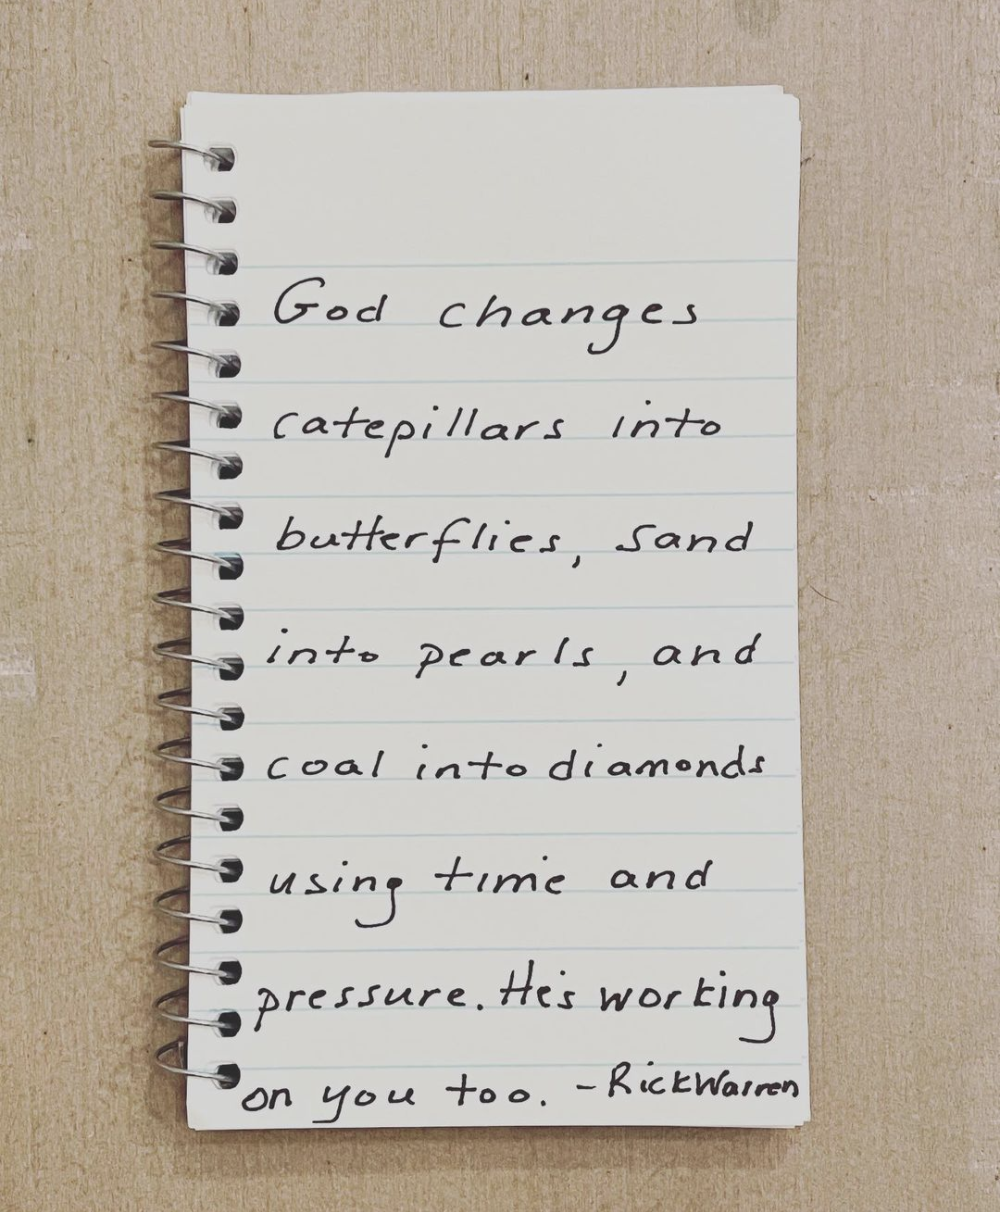 God changes
catepillars into
butterflies, sand
into pearls, and
coal into diamonds
using time and
pressure. He's working
on you too. - Rick Warren